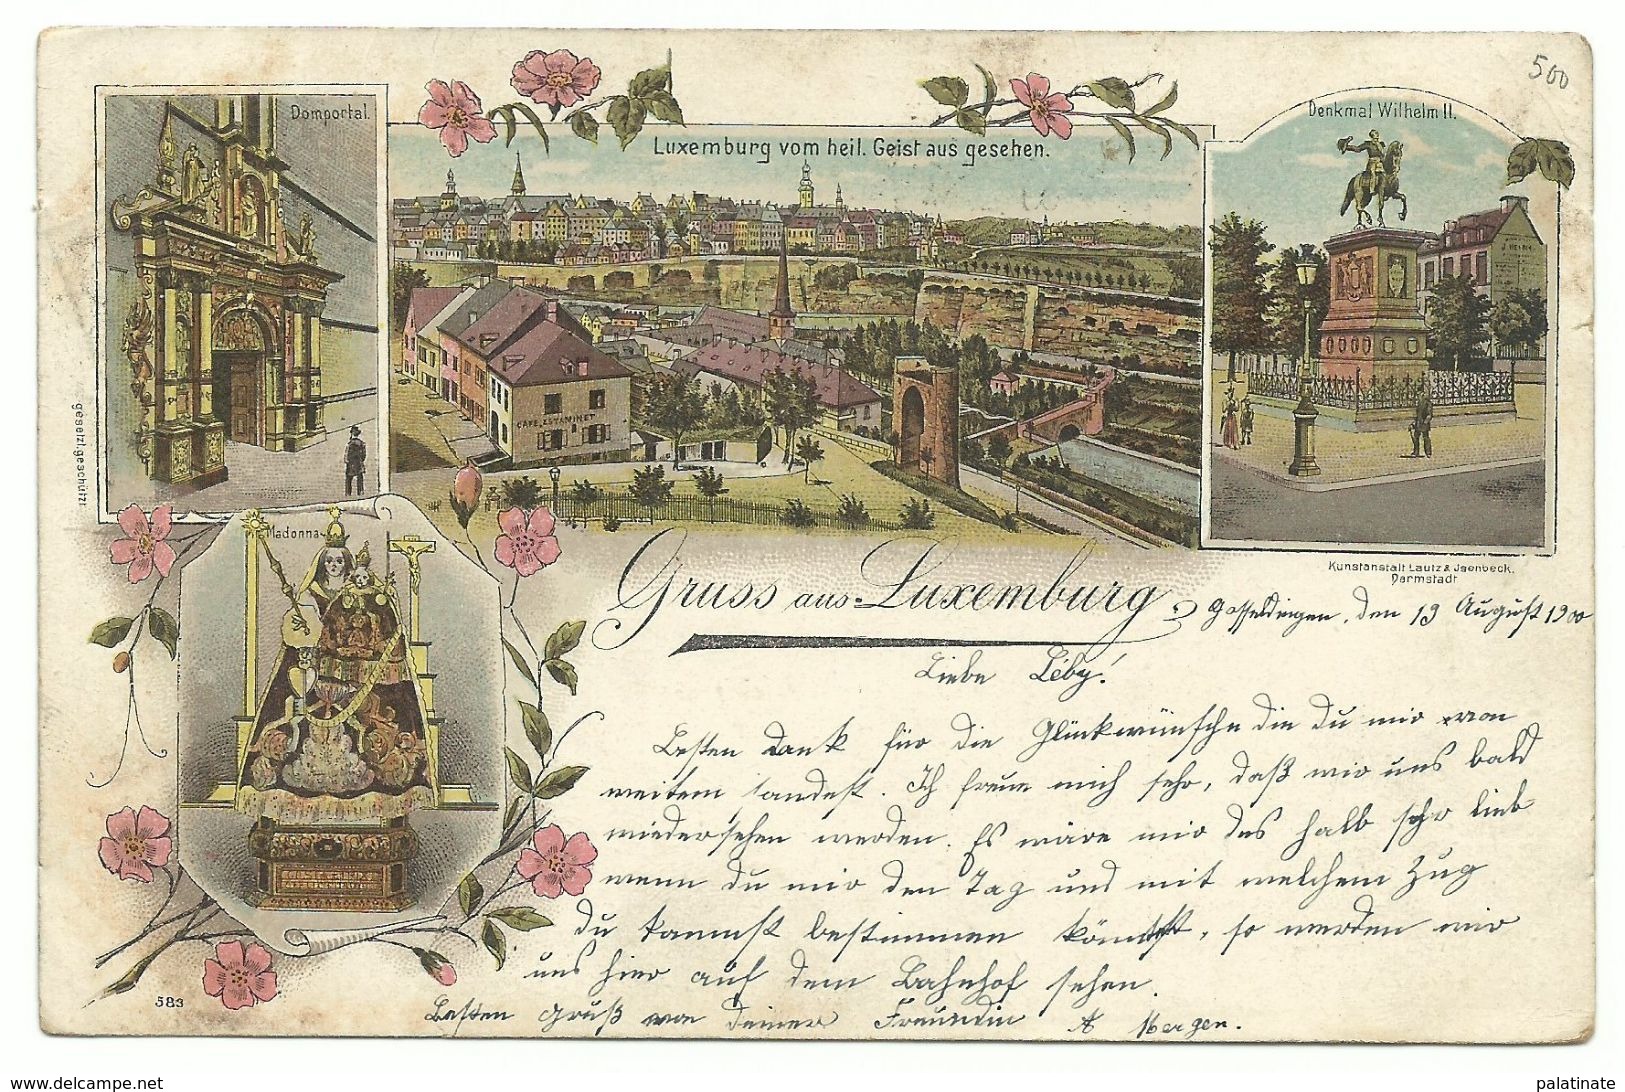 500
Domportal.
Luxemburg vom heil. Geist aus gesehen.
Denkmal Wilhelm II.
CAFE, ESTAMINET
gesetzl. geschützt
Madonna
Kunstanstalt Lautz & Jsenbeck,
Darmstadt
Gruss aus Luxemburg
Gosseldingen, den 19 August 1900
Liebe Léby!
Besten Dank für die Glückwünsche die du mir von
weitem sandest. Ich freue mich sehr, daß wir uns bald
wiedersehen werden. Es wäre mir des halb sehr lieb
wenn du mir den Tag und mit welchem Zug
du kannst bestimmen könntest, so werden wir
uns hier auf dem Bahnhof sehen.
Besten Gruß von deiner Freundin A Mergen.
583
delcampe.net
palatinate